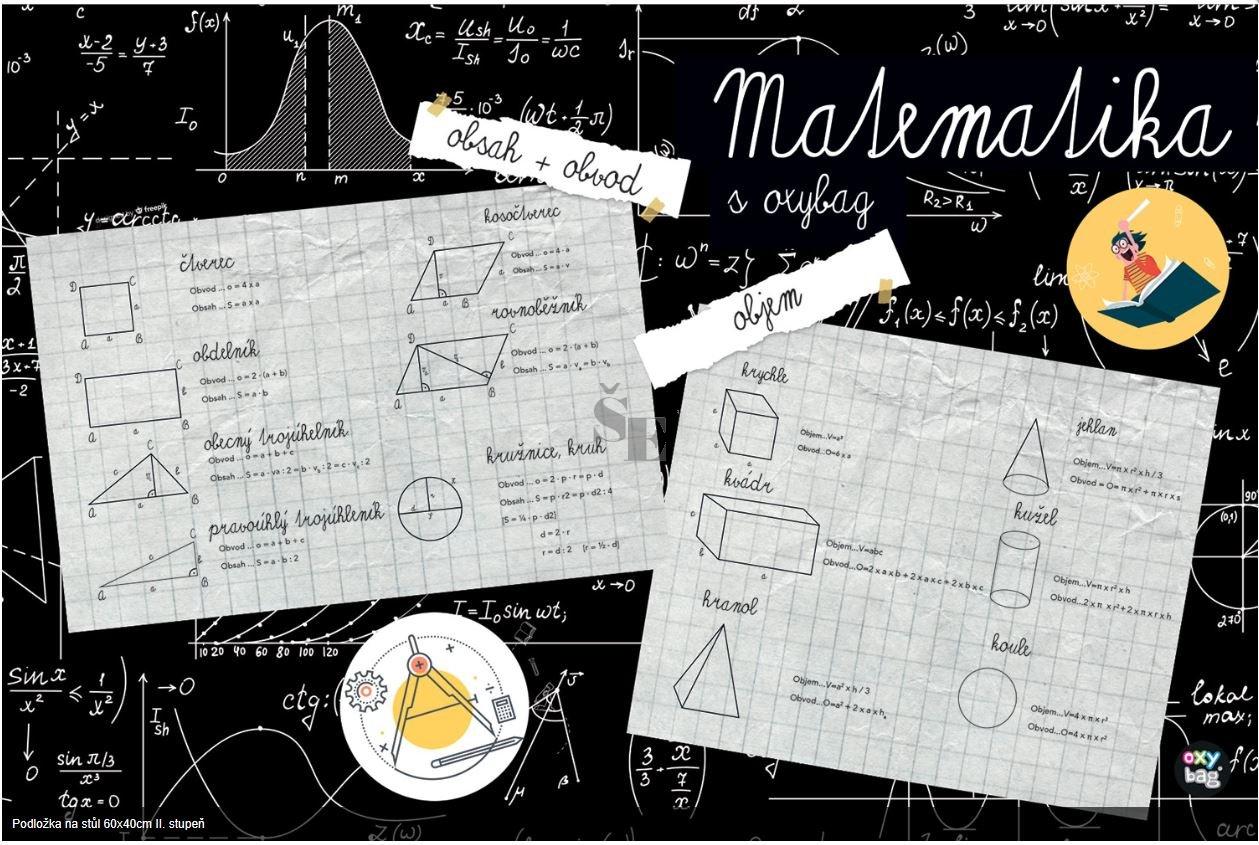 Matematika
s oxybag
obsah + obvod
čtverec
Obvod ... o = 4 x a
Obsah ... S = a x a
obdelník
Obvod ... o = 2 · (a + b)
Obsah ... S = a · b
obecný trojúhelník
Obvod ... o = a + b + c
Obsah ... S = a · va : 2 = b · v_b : 2 = c · v_c : 2
pravoúhlý trojúhleník
Obvod ... o = a + b + c
Obsah ... S = a · b : 2
kosočtverec
Obvod ... o = 4 · a
Obsah ... S = a · v
rovnoběžník
Obvod ... o = 2 · (a + b)
Obsah ... S = a · v_a = b · v_b
kružnice, kruh
Obvod ... o = 2 · p · r = p · d
Obsah ... S = p · r2 = p · d2 : 4
[S = ¼ · p · d2]
d = 2 · r
r = d : 2 [r = ½ · d]
objem
krychle
Objem...V=a³
Obvod...O=6 x a
kvádr
Objem...V=abc
Obvod...O=2 x a x b + 2 x a x c + 2 x b x c
hranol
Objem...V=a² x h / 3
Obvod...O=a² + 2 x a x h
jehlan
Objem...V=π x r² x h / 3
Obvod = O= π x r² + π x r x s
kužel
Objem...V=π x r² x h
Obvod...2 x π x r² + 2 x π x r x h
koule
Objem...V=4 x π x r³
Obvod...O=4 x π x r²
ŠE
oxy
bag
f(x)
I₀
R₂>R₁
f₁(x)≤f(x)≤f₂(x)
x→0
I=I₀ sin wt;
10 20 40 60 80 100 120
ctg:
sin π/3
x³
tgx=0
lokal
max;
90°
(0,1)
270°
Podložka na stůl 60x40cm II. stupeň